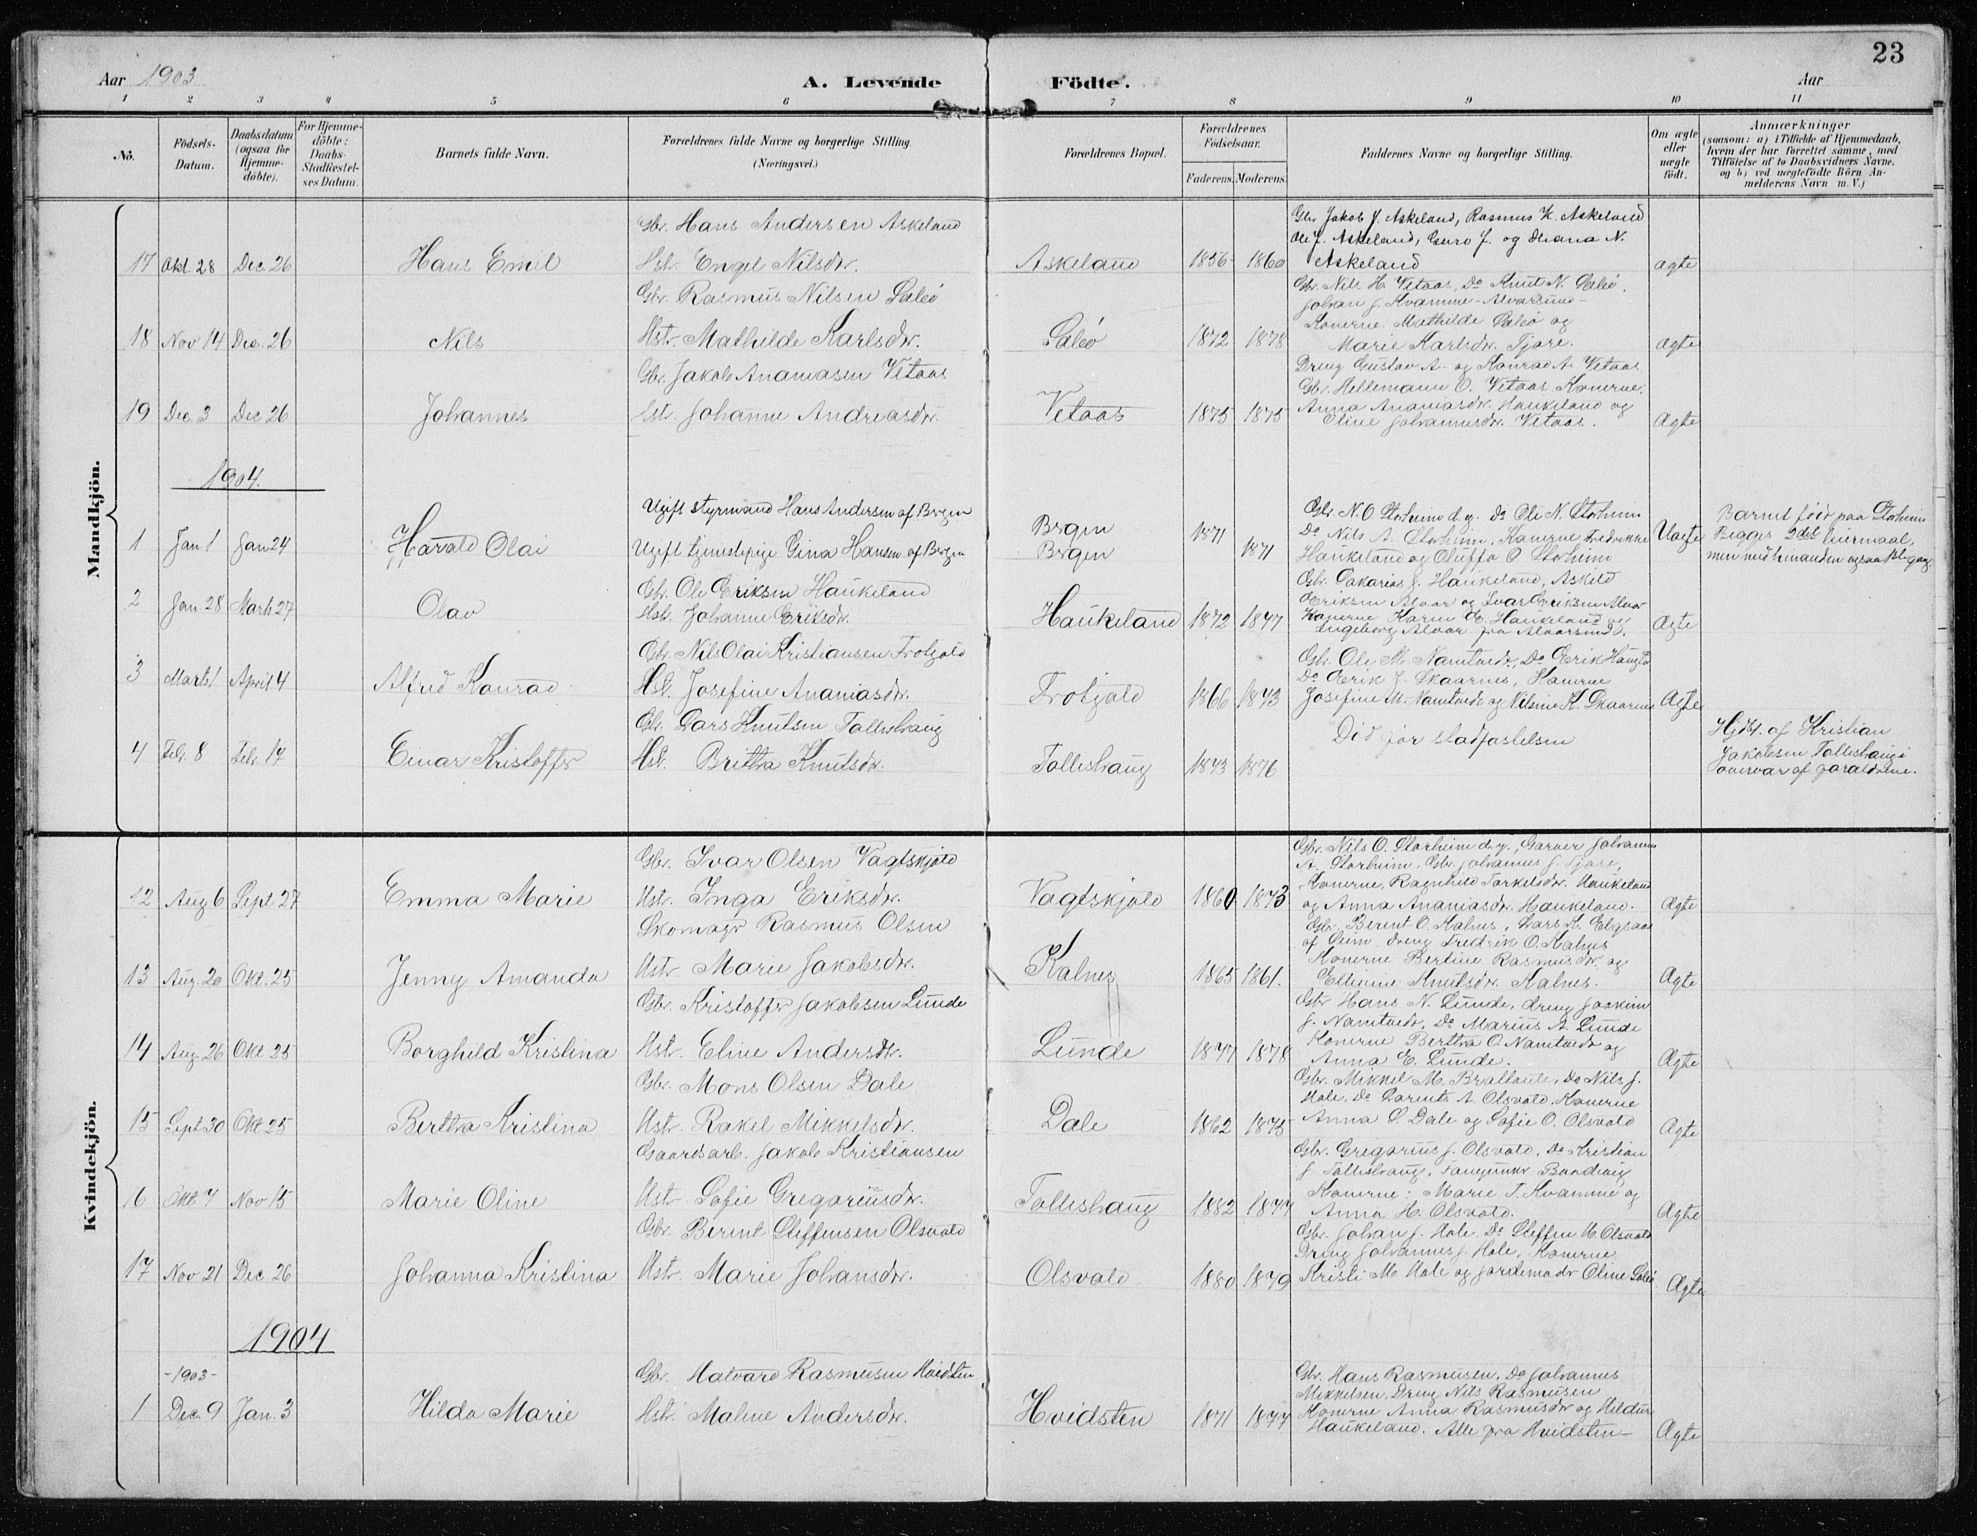 23
Aar 1903 A. Levende Födte. Aar
1 2 3 4 5 6 7 8 9 10 11
No. Födsels-Datum. Daabsdatum (ogsaa for Hjemme-döbte). For Hjemme-döbte: Daabs-Stadfæstel-ses Datum. Barnets fulde Navn. Forældrenes fulde Navne og borgerlige Stilling. (Næringsvei.) Forældrenes Bopæl. Forældrenes Födselsaar. Faderens. Moderens. Faddernes Navne og borgerlige Stilling. Om ægte eller uægte födt. Anmærkninger (saasom: a) i Tilfælde af Hjemmedaab, hvem der har forrettet samme, med Tilföielse af to Daabsvidners Navne, og b) ved uægtefödte Börn Anmelderens Navn m. V.)
Mandkjön.
Gbr. Hans Andersen Askeland
Gbr Jakob J. Askeland, Rasmus K. Askeland
Ole J. Askeland, Guro J. og Diana N.
17 Okt 28 Dec. 26 Hans Emil Hst. Engel Nilsdr. Askeland 1856 1860 Askeland ægte
Gbr. Rasmus Nilsen Saleö
Gbr. Nils H. Vetaas, Do Knut N. Saleö.
Johan J. Kvamme-Alvarsund-
18 Nov 14 Dec. 26 Nils Hst. Mathilde Karlsdr. Saleö 1872 1878 Konerne Mathilde Saleö og
Marie Karlsdr. Tjore. ægte
Gbr. Jakob Ananiasen Vetaas
Dreng Gustav A- og Konrad A. Vetaas
Gbr. Hellemann O. Vetaas Konerne:
19 Dec. 3 Dec 26 Johannes Hst. Johanne Andreasdr. Vetaas 1875 1875 Anna Ananiasdr. Haukeland og
Oline Johannesdr. Vetaas. Ægte
1904.
Ugift Styrmand Hans Andersen af Bergen
Gbr. N. O. Storheim d.y. Do Ole N. Storheim
Barnet født paa Storheim
1 Jan 1 Jan 24 Harald Olai Ugift tjenestepige Gina Hansen af Bergen Bergen Bergen 1871 1871 Do Nils A. Storheim, Konerne Fredrikke
Haukeland og Oluffa O Storheim Uægte Begges 2det leiermaal,
men med hinanden ogsaa 1ste gang.
Gbr. Ole Eriksen Haukeland
Gbr. Sakarias J. Haukeland, Askeld
2 Jan 28 Marts 27 Olav Hst. Johanne Eriksdr. Haukeland 1872 1877 Eriksen Alvar og Ivar Eriksen Alvar
Konerne Karen E. Haukeland og
Ingeborg Alvar fra Alvarsund. Ægte
Gbr. Nils Olai Kristiansen Trotjold
Gbr. Ole M. Namtvedt, Do Erik
3 Marts 1 April 4 Alfred Konrad Hst. Josefine Ananiasdr. Trotjold 1866 1873 Do Erik J. Skaarnes, Konerne
Josefine M. Namtvedt og Nilsine K. Skaarnes Ægte
Gbr. Lars Knutsen Tolleshaug
4 Feb. 8 Febr. 17 Einar Kristoffer Hst. Brithe Knutsdr. Tolleshaug 1873 1876 Død før stadfæstelsen Hjdt. af Kristian
Jakobsen Tolleshaug i
overvær af forældrene.
Kvindekjön.
Gbr. Ivar Olsen Vagtskjold
Gbr. Nils O. Storheim d.y., Garver Johannes
A. Storheim, Gbr. Johannes J. Tjore,
12 Aug 6 Sept. 27 Emma Marie Hst. Inga Eriksdr. Vagtskjold 1860 1873 Konerne, Ragnhild Torkelsdr. Haukeland
og Anna Ananiasdr. Haukeland. Ægte
Skomager Rasmus Olsen
Gbr. Berent O. Kalnes, Lars K. Elgsaas
af Seim, dreng Fredrik O. Kalnes
13 Aug 20 Okt. 25 Jenny Amanda Hst. Marie Jakobsdr. Kalnes 1865 1861. Konerne Bertine Rasmusdr. og
Knutsdr. Kalnes. Ægte
Gbr. Kristoffer Jakobsen Lunde
Gbr. Hans N. Lunde, dreng Joakim
J. Namtvedt, Do Marius A. Lunde
14 Aug 26 Okt 25 Borghild Kristina Hst. Eline Andersdr. Lunde 1877 1878 Konerne Berthe O. Namtvedt og
Anna E. Lunde. Ægte
Gbr. Mons Olsen Dale
Gbr. Mikkel M. Brattaule, Do Nils J.
Hole, Do Lorents A. Olsvold. Konerne
15 Sept 30 Okt 25 Bertha Kristina Hst. Rakel Mikkelsdr. Dale 1862 1875 Anna S. Dale og Sofie O. Olsvold Ægte
Gaardsarb. Jakob Kristiansen
Gbr. Gregorius J. Olsvold, Do Kristian
J. Tolleshaug,
16 Okt 7 Nov 15 Marie Oline Hst. Sofie Gregoriusdr. Tolleshaug 1882 1877 Konerne: Marie T. Kvamme og
Anna H. Olsvold. Ægte
Gbr. Berent Steffensen Olsvold
Gbr. Johan J. Hole. Do Steffen M. Olsvold
Dreng Johannes J. Hole, Konerne
17 Nov 21 Dec. 26 Johanna Kristina Hst. Marie Johansdr. Olsvold 1880 1879 Kristi M. Hole og Jordemoder Oline Saleö Ægte
1904
-1903-
Gbr. Halvard Rasmusen Hvidsten
Gbr. Hans Rasmusen, Do Johannes
Mikkelsen, Dreng Nils Rasmusen
1 Dec. 9 Jan. 3 Hilda Marie Hst. Malene Andersdr. Hvidsten 1871 1877 Konerne Anna Rasmusdr og Hildur
Haukeland. Alle fra Hvidsten- Ægte